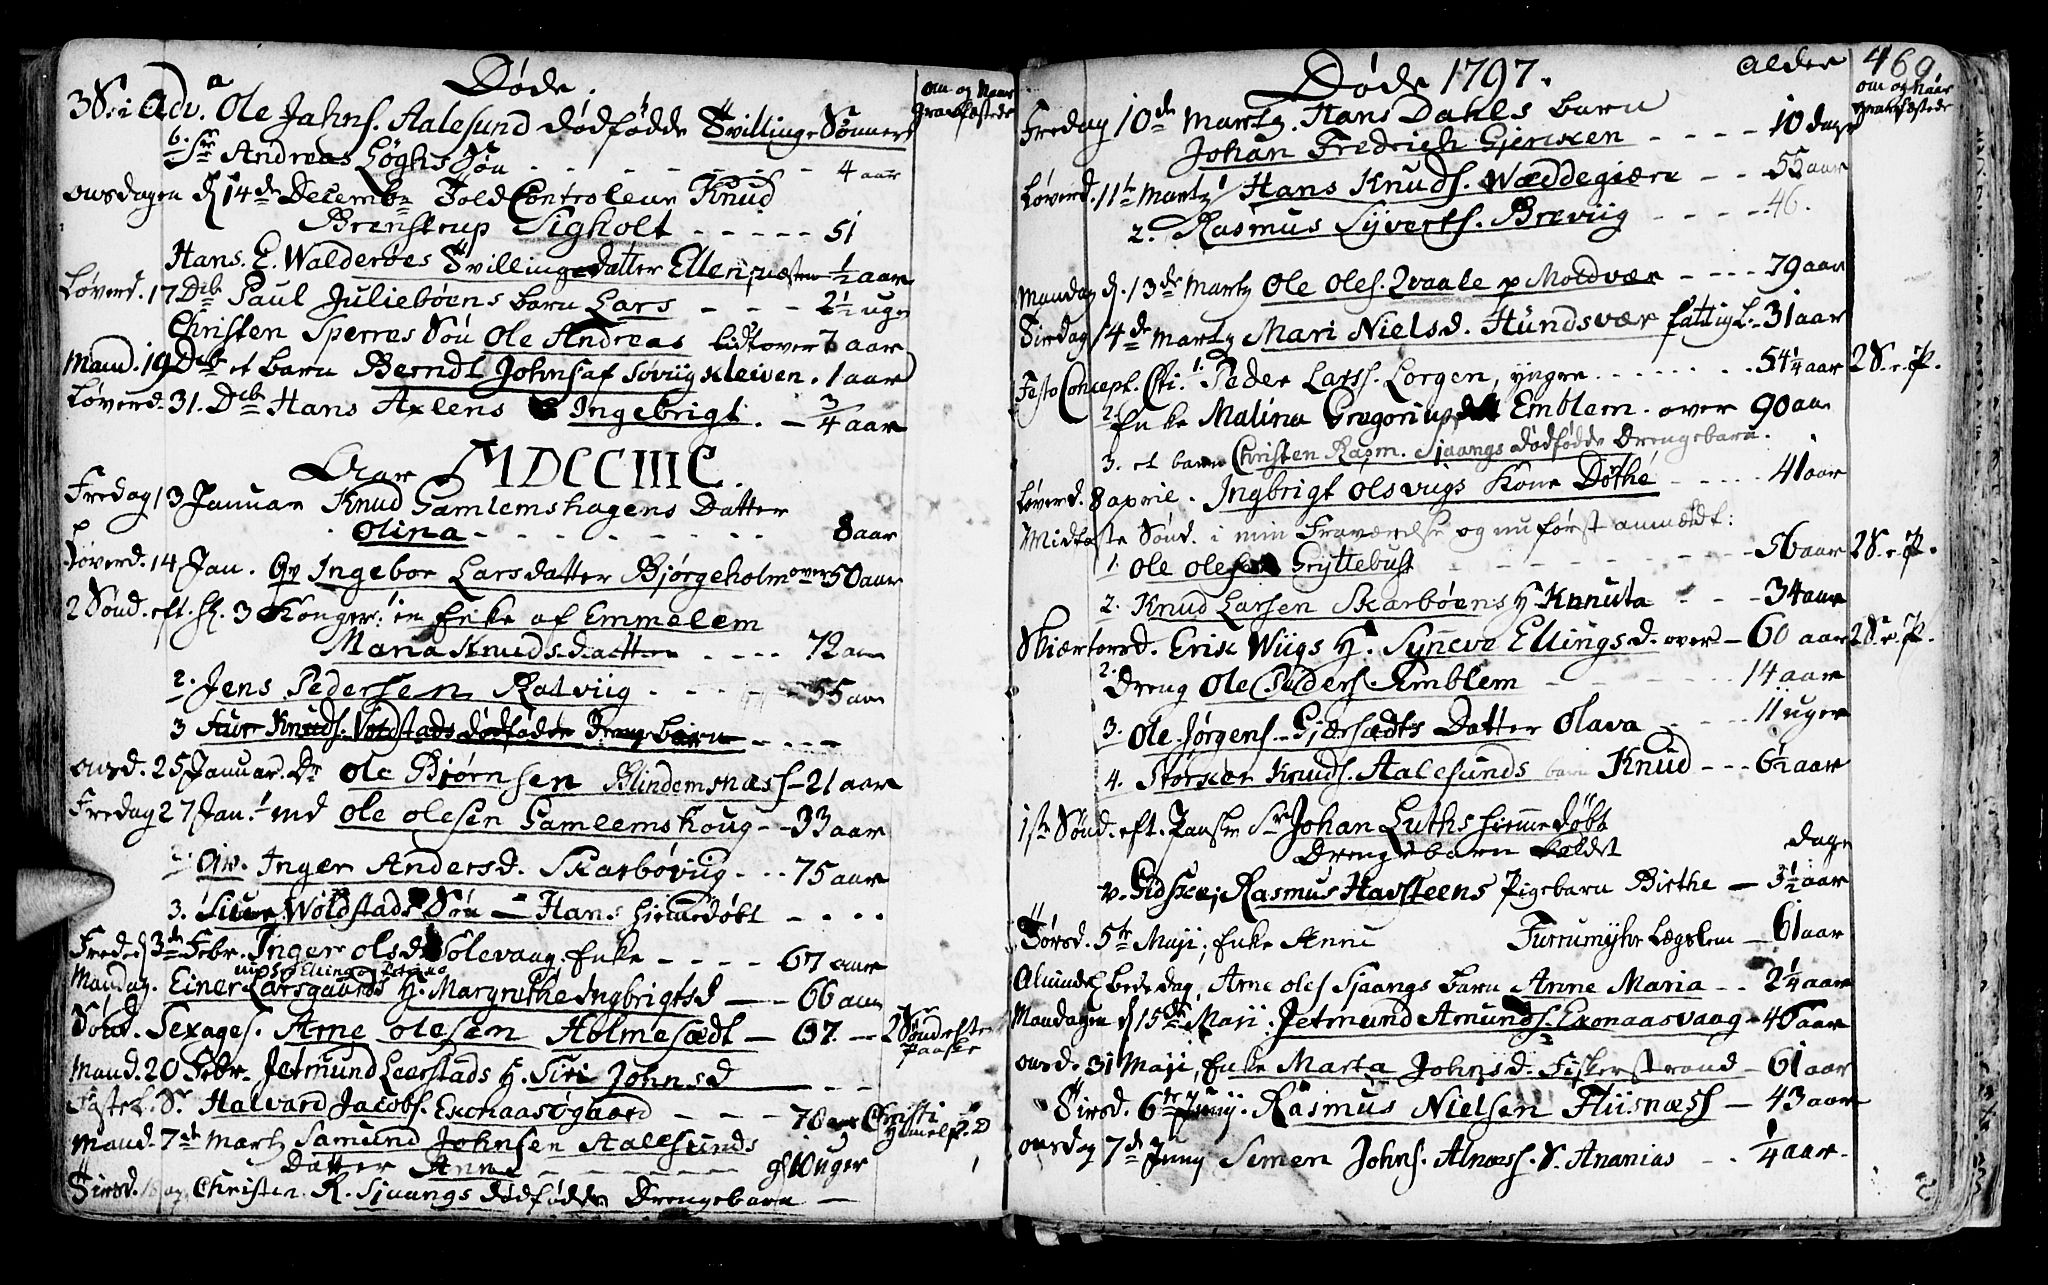 Døde.
om og Naar
Gravfæstede
3 S. i Adv. Ole Jahns. Aalesund dødfødde Tvillinge Sønner
6. Sr Andreas Løghs Søn - - - 4 aar
onsdagen d 14de Decembr Told Controleur Knud
Brenstrup Sigholt - - - - - 51
Hans. E. Walderøes Tvillingedatter Ellen; næsten ½ aar
Løverd. 17 Dcb Paul Juliebøens barn Lars - - - 2½ uge
Christen Sperres Søn Ole Andreas lidt over 7 aar
Mand. 19 Dcb et barn Berndt Johns af Søviig Kleiven. 1 aar
Løverd. 31. Dcb Hans Axlens Ingebrigt. - 3/4 aar
Aar MDCCIIIC.
Fredag 13 Januar Knud Gamlemshagens Datter
Olina - - - - - 8 aar
Løverd. 14 Jan. Qv Ingebor Larsdatter Bjørgeholm over 50 aar
2 Sønd. eft. H. 3 Konger: en Enke af Emmelem
Maria Knudsdatter - - - - 72 aar
2. Jens Pedersen Ratviig - - - 55 aar
3 Knuds. Voldstads dødfødde Drengebarn - - - -
onsd. 25 Januar. Dr Ole Bjørnsen Blindemsnæss - 21 aar
Fredag 27 Jan. 1 md Ole Olesen Gamlemshoug - - 33 aar
2. Qv. Inger Andersd. Skarbøviig - - - 75 aar
3. Woldstads Søn - Hans hiemmedøbt - - - -
Fred. d 3de Febr. Inger Olsd. Solevaag. Enke - - - - 67 aar
Mandag. Einer Larsgaards H. Margrethe Ingbrigtsd - - 66 aar
Sønd. Sexages. Arne Olesen Holmesædt - 67. - 2 Sønd efter
Paaske
Mand. 20 Febr. Jetmund Leerstads H. Siri Johnsd - - -
Fastel. S. Halvard Jacobs. Exonaasøgaard - - - 78 aar Christi
Himelf. D
Mand. 7de Martz Samund Johnsen Aalesunds
Datter Anne - - - - - 10 uger
Tirsd. Christen R. Sjaangs dødfødde Drengebarn -
Døde 1797.
Alder
469
om og Naar
gravfæstede
Fredag 10de Martz. Hans Dahls barn
Johan Fredrich Gjerixen - - - - 10 dage
Løverd. 11te Martz 1 Hans Knuds. Wæddegiære - - 55 aar
2. Rasmus Syverts. Breviig - - - - 46.
Mandag d. 13de Martz Ole Oles. Qvaale p Moldvær - - - - 79 aar
Tirsdag 14de Martz Mari Nielsd. Hundsvær fattig L. - 31 aar
Festo Concept. Chi. 1. Peder Larss. Lorgen, yngre - - - - 54¼ aar 2 S. e. P.
2. Enke Malina Gregoriusd. Emblem. over 90 aar
3. et barn Christen Rasm. Sjaangs dødfødde Drengebarn.
Løverd. 8 april. Ingbrigt Olsvigs Kone Døthe - - - - - 41 aar
Midfaste Sønd. i min Fraværelse og nu først anmeldt:
1. Ole Olesen Gryttebust - - - - - 56 aar 2 S. e. P.
2. Knud Larsen Skarbøens H. Knnuta - - - 34 aar
Skiærtorsd. Erik Wiigs H. Synneve Ellingsd. over - 60 aar 2 S. e. P.
2. Dreng Ole Peders. Emblem - - - - 14 aar
3. Ole Jørgens. Gjærsædts Datter Olava - - - - 11 uger
4. Storsker Knuds. Aalesunds barn Knud - - - 6½ aar
1ste Sønd. eft. Paaske Sr Johan Luths hiemmedøbt
Drengebarn kaldet dage
v. Gidske; Rasmus Havsteens Pigebarn Birthe - 3½ aar
Torsd. 5te Maji, Enke Anne Furrumyhr Lægslem - 61 aar
Alminde: bededag, Arne Oles Sjaangs barn Anne Maria - - 2¼ aar
Mandagen d 15de Maji. Jetmund Amunds. Exonaasvaag - 46 aar
onsd. 31 Maji, Enke Marta Johnsd. Fiskerstrand - 61 aar
Tirsd. 6te Junij. Rasmus Nielsen Fliisnæss - 43 aar
onsdag 7de Juny Simen Johns. Alnæss. S. Ananias - - ¼ aar.